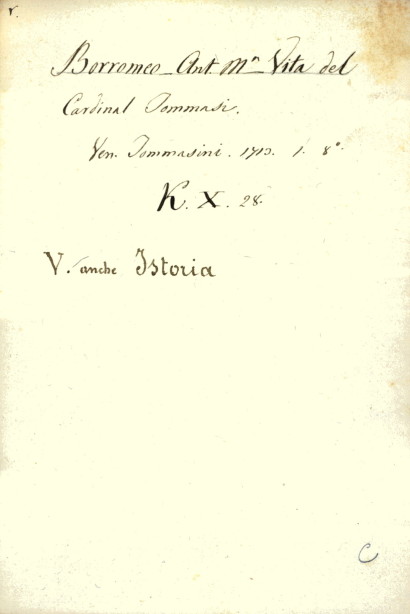 r.
Borromeo - Ant. Mᵃ Vita del
Cardinal Tommasi.
Ven. Tommasini. 1713. 1. 8°.
K. X. 28.
V. anche Istoria
C